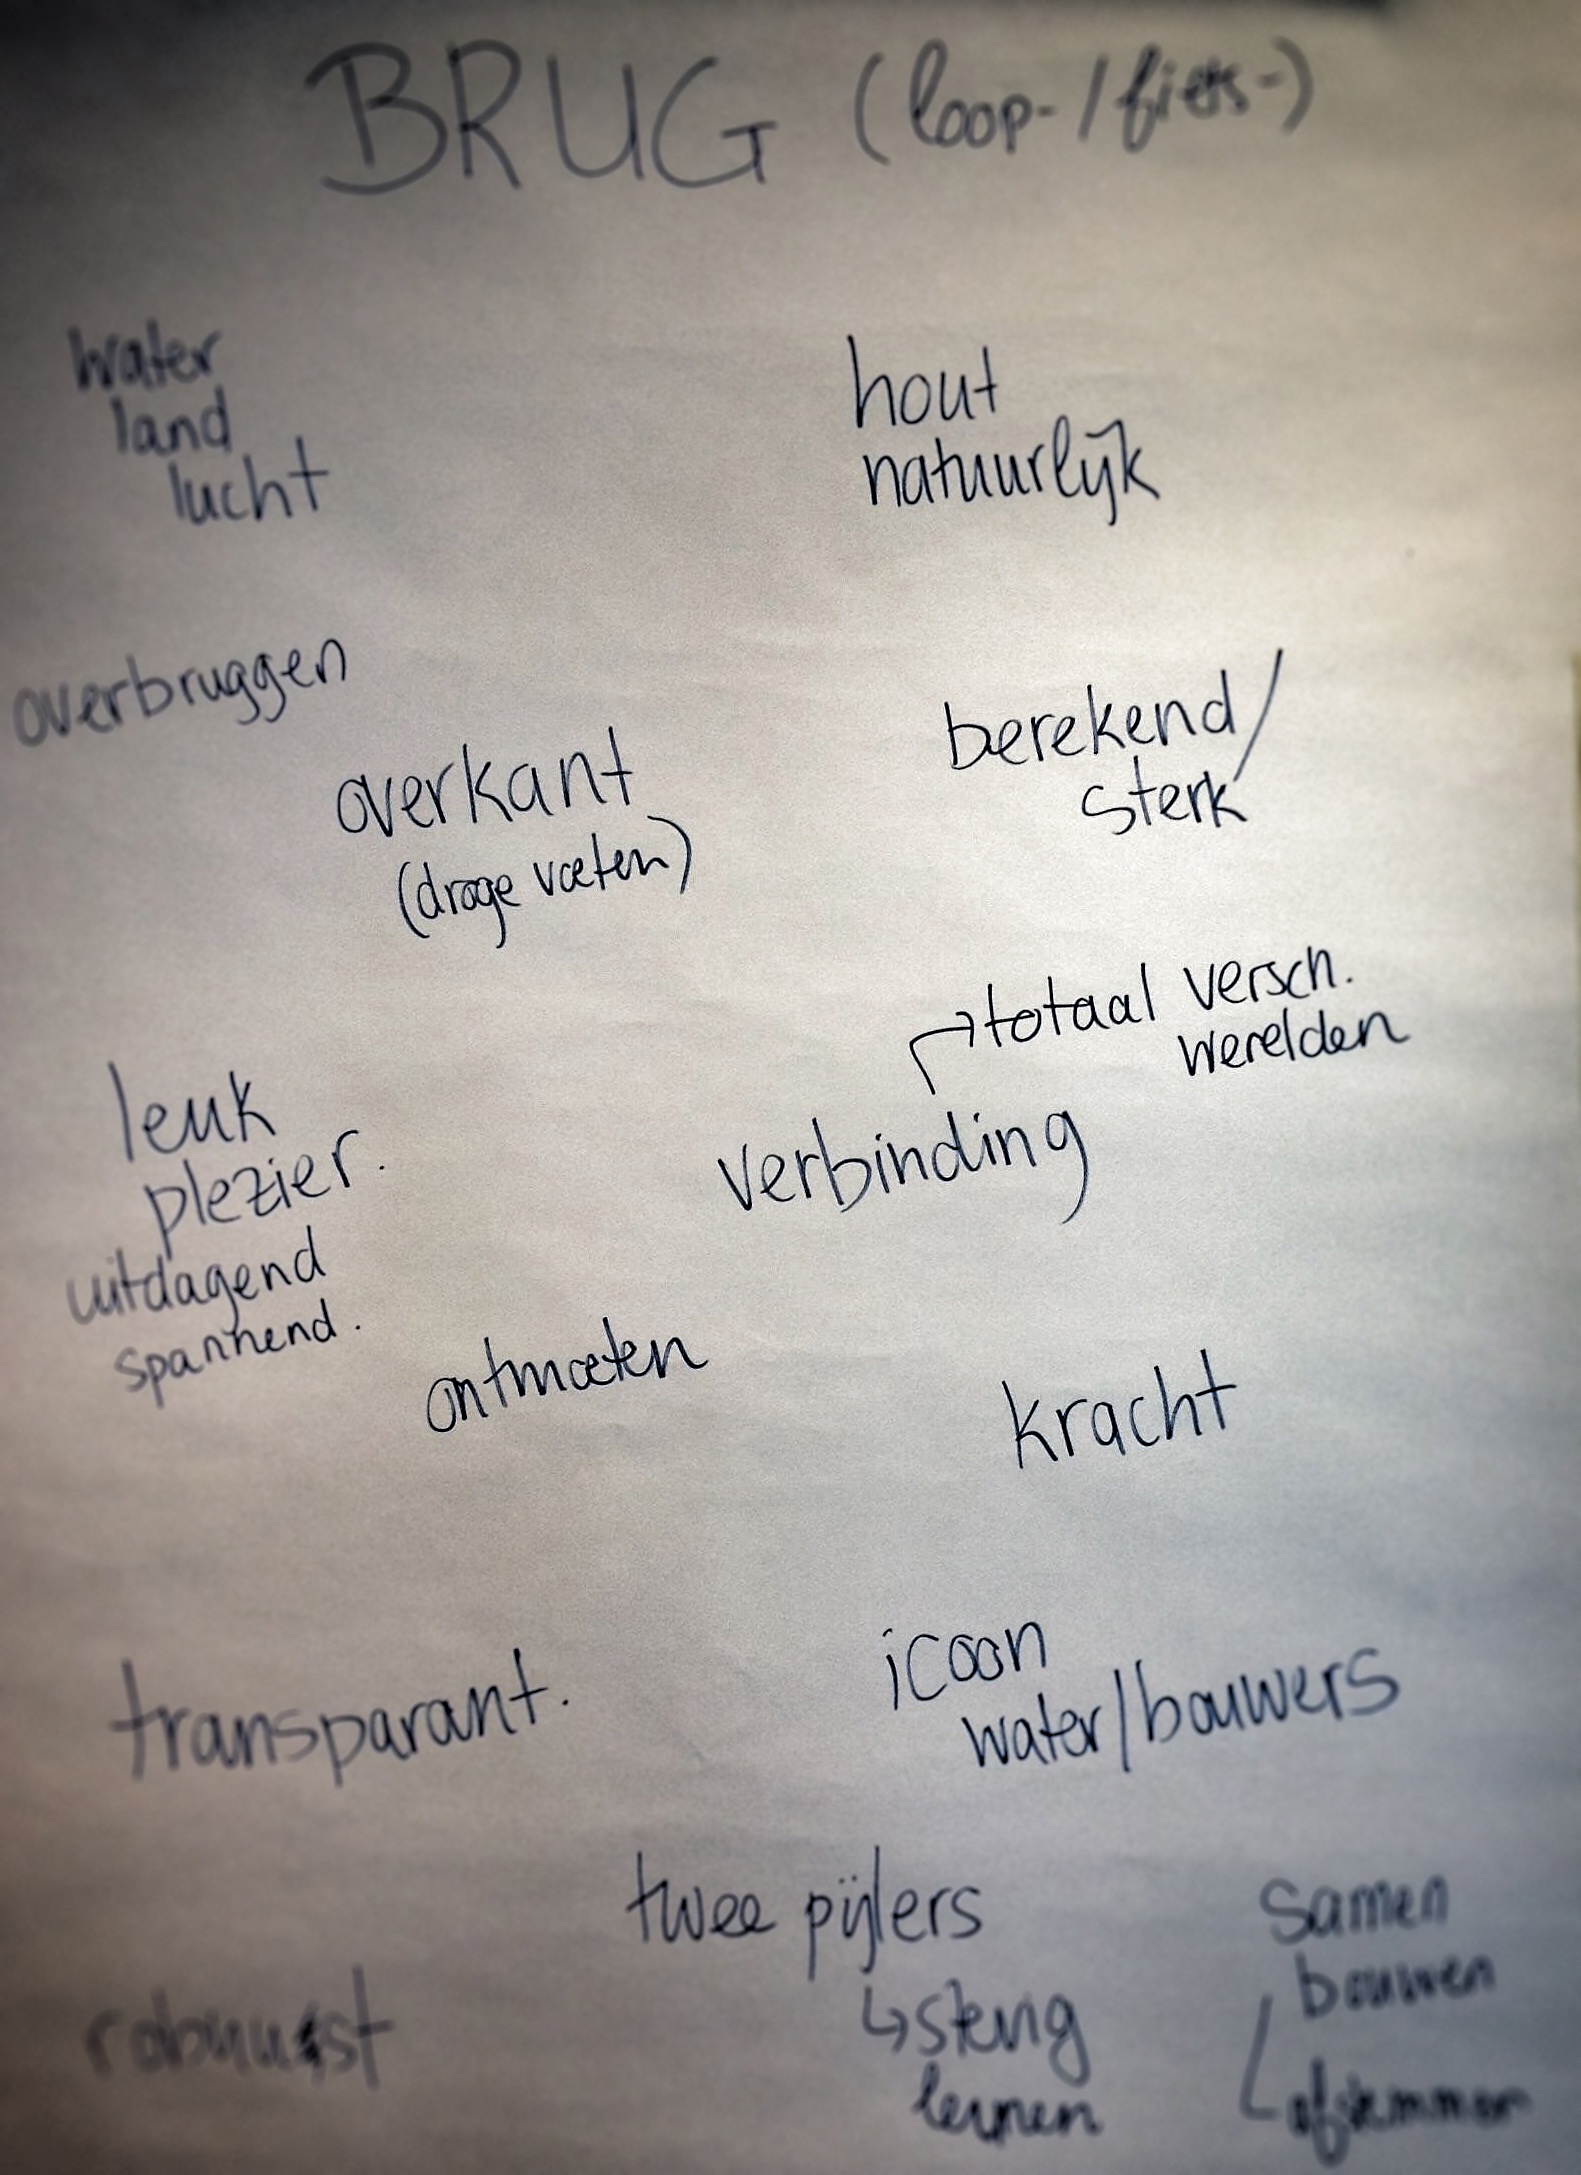 BRUG (loop-/fiets-)
water
land
lucht
hout
natuurlijk
overbruggen
overkant
(droge voeten)
berekend/
sterk
→totaal versch.
werelden
verbinding
leuk
plezier.
uitdagend
spannend.
ontmoeten
kracht
transparant.
icoon
water/bouwers
twee pijlers
↳stevig
leunen
samen
bouwen
afstemmen
robuust